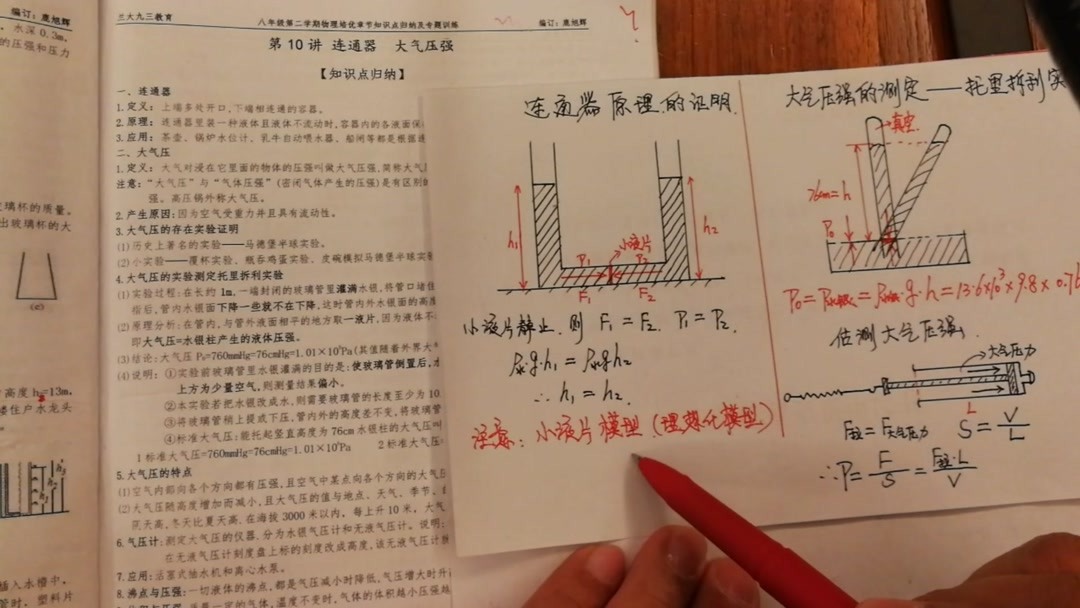 水深0.3m,
的压强和压力
璃杯的质量。
出玻璃杯的大
(c)
高度h=13m,
楼住户水龙头
插入水槽中,
管时,塑料片
兰大九三教育
八年级第二学期物理培优章节知识点归纳及专题训练
编订:晁旭辉
第10讲 连通器 大气压强
【知识点归纳】
一、连通器
1.定义:上端多处开口,下端相连通的容器。
2.原理:连通器里装一种液体且液体不流动时,容器内的各液面保
3.应用:茶壶、锅炉水位计、乳牛自动喂水器、船闸等都是根据连
二、大气压
1.定义:大气对浸在它里面的物体的压强叫做大气压强,简称大气
注意:“大气压”与“气体压强”(密闭气体产生的压强)是有区别的
强。高压锅外称大气压。
2.产生原因:因为空气受重力并且具有流动性。
3.大气压的存在实验证明
(1)历史上著名的实验——马德堡半球实验。
(2)小实验——覆杯实验、瓶吞鸡蛋实验、皮碗模拟马德堡半球实验
4.大气压的实验测定托里拆利实验
(1)实验过程:在长约1m,一端封闭的玻璃管里灌满水银,将管口堵住
指后,管内水银面下降一些就不在下降,这时管内外水银面的高度
(2)原理分析:在管内,与管外液面相平的地方取一液片,因为液体不
即大气压=水银柱产生的液体压强。
(3)结论:大气压P₀=760mmHg=76cmHg=1.01×10⁵Pa(其值随着外界大
(4)说明:①实验前玻璃管里水银灌满的目的是:使玻璃管倒置后,水
上方为少量空气,则测量结果偏小。
②本实验若把水银改成水,则需要玻璃管的长度至少为10.
③将玻璃管稍上提或下压,管内外的高度差不变,将玻璃管
④标准大气压:能托起竖直高度为76cm水银柱的大气压叫
1标准大气压=760mmHg=76cmHg=1.01×10⁵Pa 2标准大气压=
5.大气压的特点
(1)空气内部向各个方向都有压强,且空气中某点向各个方向的大气
(2)大气压随高度增加而减小,且大气压的值与地点、天气、季节、
阴天高,冬天比夏天高。在海拔3000米以内,每上升10米,大气
6.气压计:测定大气压的仪器。分为水银气压计和无液气压计。说明:
在无液气压计刻度盘上标的刻度改成高度,该无液气压计
7.应用:活塞式抽水机和离心水泵。
8.沸点与压强:一切液体的沸点,都是气压减小时降低,气压增大时升
一定的气体,温度不变时,气体的体积越小压强越
编订:晁旭辉
连通器原理的证明
h₁
h₂
小液片
P₁
P₂
F₁
F₂
小液片静止,则 F₁=F₂, P₁=P₂.
ρ液g·h₁=ρ液gh₂
∴ h₁=h₂.
注意:小液片模型(理想化模型)
大气压强的测定——托里拆利实
真空
76cm=h
P₀
P₀=P水银=ρ水银g·h=13.6×10³×9.8×0.76
估测大气压强.
大气压力
L
F拉=F大气压力 S=V/L
∴P=F/S=F拉·L/V